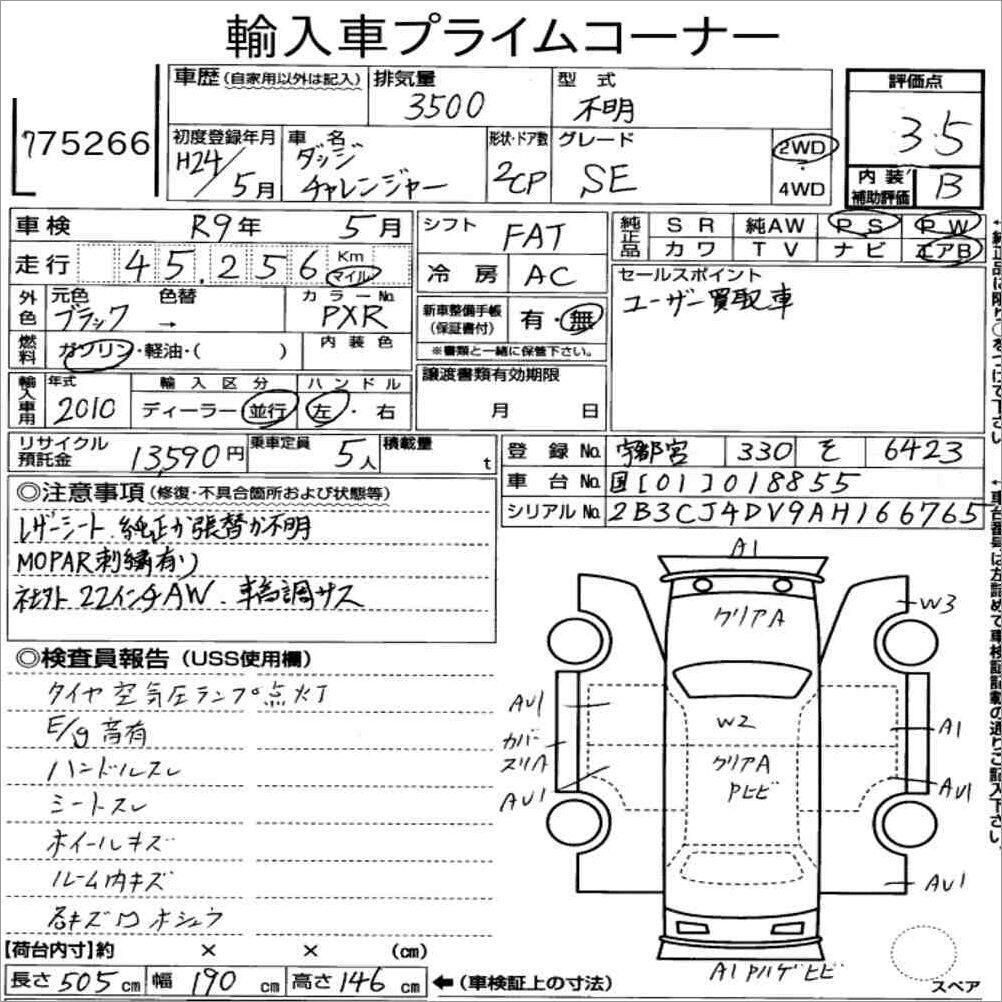 輸入車プライムコーナー
775266
車歴(自家用以外は記入)
排気量
3500
型式
不明
評価点
3.5
初度登録年月
H24/5月
車名
ダッジ
チャレンジャー
形状・ドア数
2CP
グレード
SE
2WD
4WD
内装補助評価
B
車検 R9年 5月
走行 45,256 Km マイル
外色
元色
ブラック
色替
→
カラーNo.
PXR
燃料
ガソリン・軽油・( )
内装色
輸入車用
年式
2010
輸入区分
ディーラー・並行
ハンドル
左・右
シフト FAT
冷房 AC
新車整備手帳(保証書付) 有・無
※書類と一緒に保管下さい。
譲渡書類有効期限
月 日
純正品
SR 純AW PS PW
カワ TV ナビ エアB
セールスポイント
ユーザー買取車
リサイクル預託金 13,590円
乗車定員 5人
積載量 t
登録No. 宇都宮 330 そ 6423
車台No. 国[01]018855
シリアルNo. 2B3CJ4DV9AH166765
◎注意事項(修復・不具合箇所および状態等)
レザーシート.純正か張替か不明
MOPAR刺繍有り
社外22インチAW.車高調サス
◎検査員報告(USS使用欄)
タイヤ空気圧ランプ点灯
E/g音有
ハンドルスレ
シートスレ
ホイールキズ
ルーム内キズ
各キズ口ホシュウ
A1
クリアA
W3
AU1
W2
A1
カバースリA
クリアA
Pヒビ
AU1
AU1
AU1
A1 Pハゲヒビ
スペア
【荷台内寸】約 × × (cm)
長さ505cm 幅190cm 高さ146cm
←(車検証上の寸法)
←純正品に限り○をつけて下さい
←車台番号は左詰めで車検証記載の通りご記入下さい。